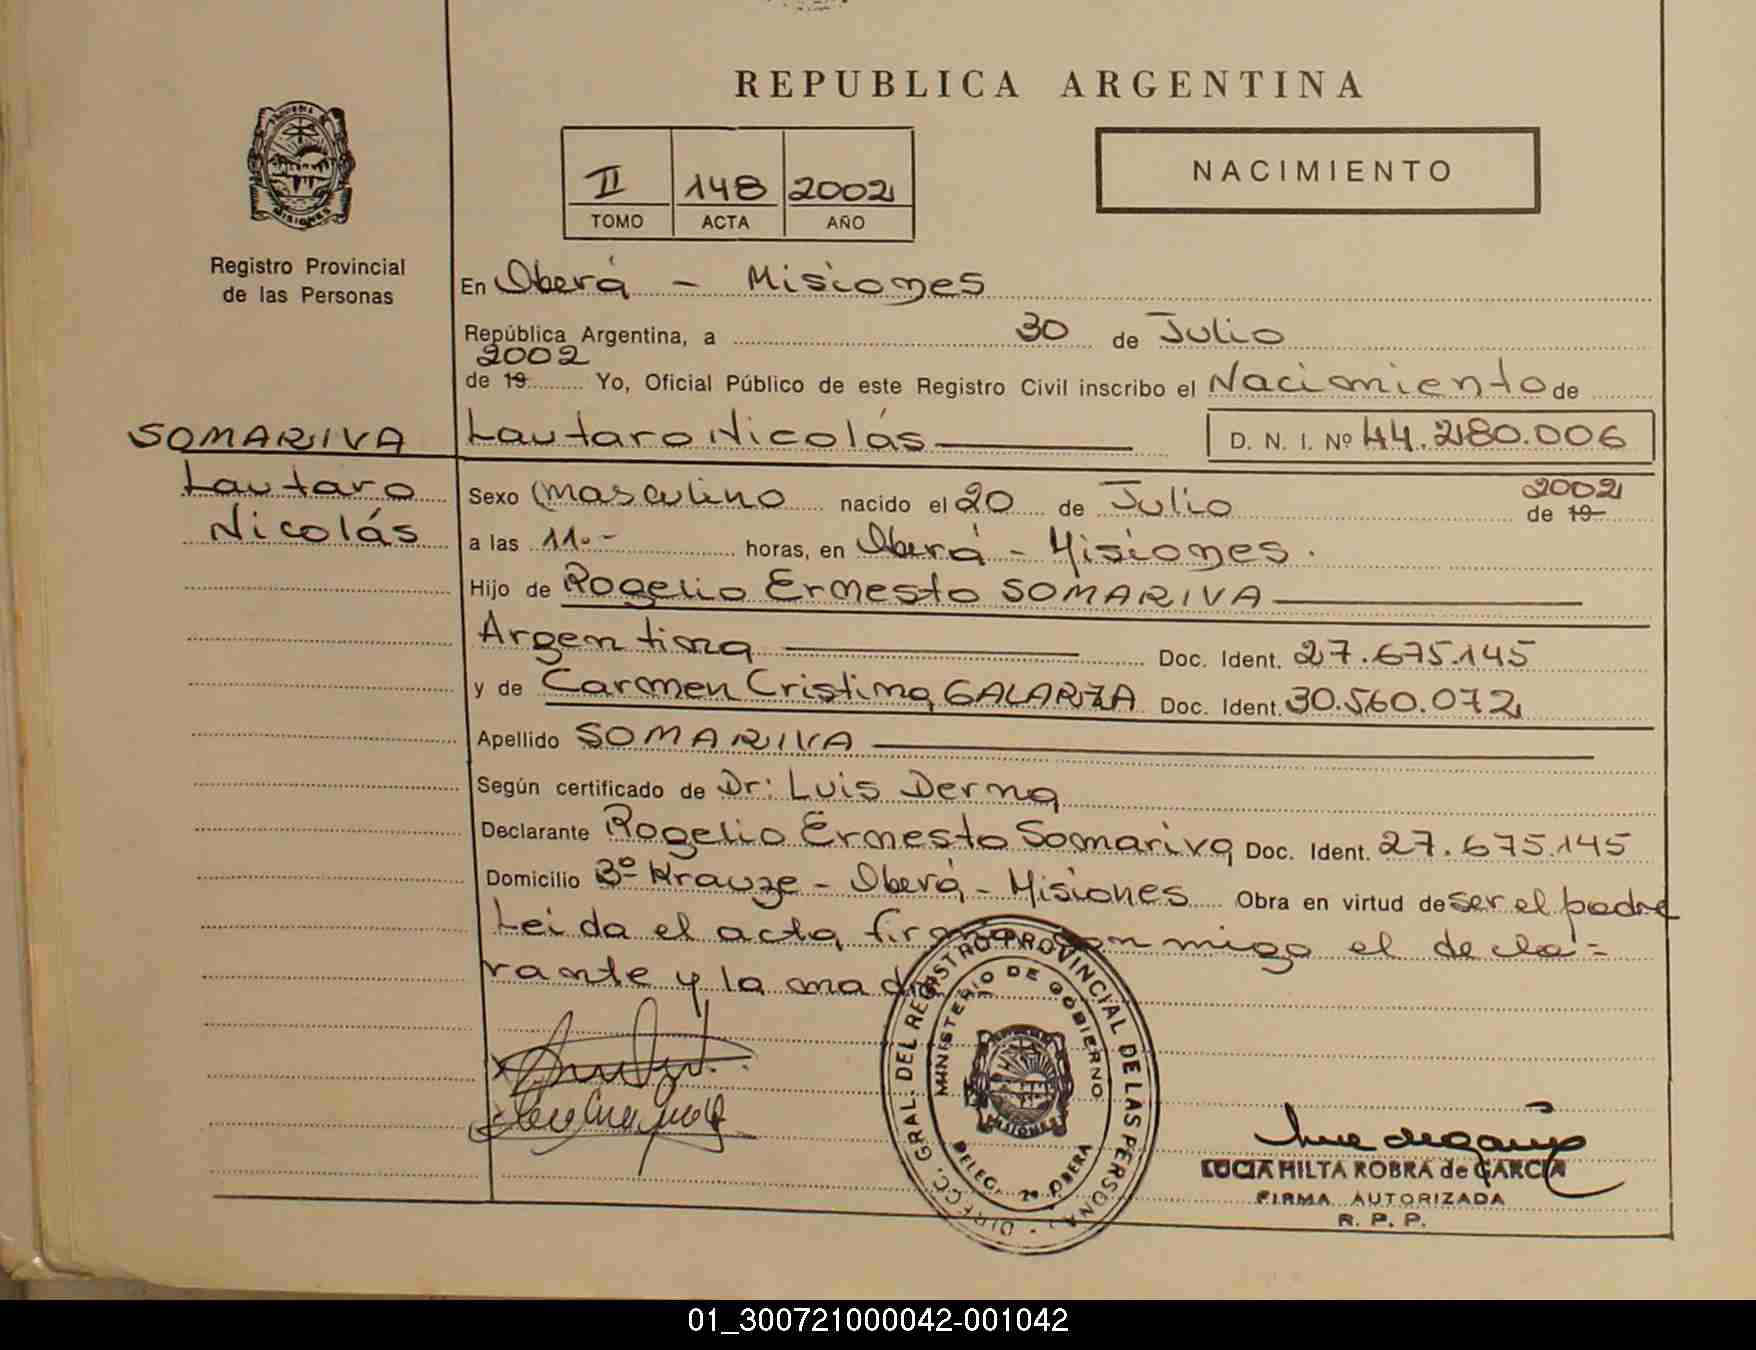 REPUBLICA ARGENTINA
MISIONES
Registro Provincial
de las Personas
II 148 2002
TOMO ACTA AÑO
NACIMIENTO
En Oberá - Misiones
República Argentina, a 30 de Julio
2002
de 19 Yo, Oficial Público de este Registro Civil inscribo el Nacimiento de
SOMARIVA
Lautaro
Nicolás
Lautaro Nicolás D. N. I. Nº 44.280.006
Sexo masculino nacido el 20 de Julio 2002 de 19
a las 11.- horas, en Oberá - Misiones.
Hijo de Rogelio Ernesto SOMARIVA
Argentina Doc. Ident. 27.675.145
y de Carmen Cristina GALARZA Doc. Ident. 30.560.072
Apellido SOMARIVA
Según certificado de Dr: Luis Derna
Declarante Rogelio Ernesto Somariva Doc. Ident. 27.675.145
Domicilio Bº Krauze - Oberá - Misiones Obra en virtud de ser el padre
Leida el acta firma conmigo el decla-
rante y la madre
DIRECC. GRAL. DEL REGISTRO PROVINCIAL DE LAS PERSONAS
MINISTERIO DE GOBIERNO
MISIONES
DELEG. 2ª OBERA
LUCIA HILTA ROBRA de GARCIA
FIRMA AUTORIZADA
R. P. P.
01_300721000042-001042